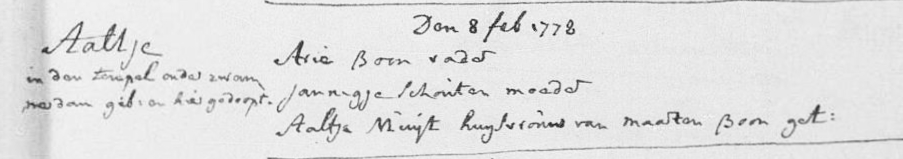 Den 8 feb 1778
Aaltje
in den tempel onder zwam
merdam geb: en hier gedoopt.
Arie Boon vader
Jannigje Schouten moeder
Aaltje Muijt huysvrouw van maarten Boon get: